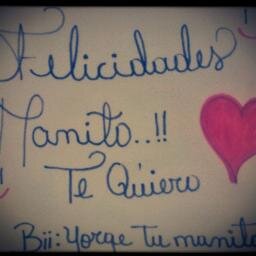 Felicidades
Manito..!!
Te Quiero
Bii: Yorge Tu manito